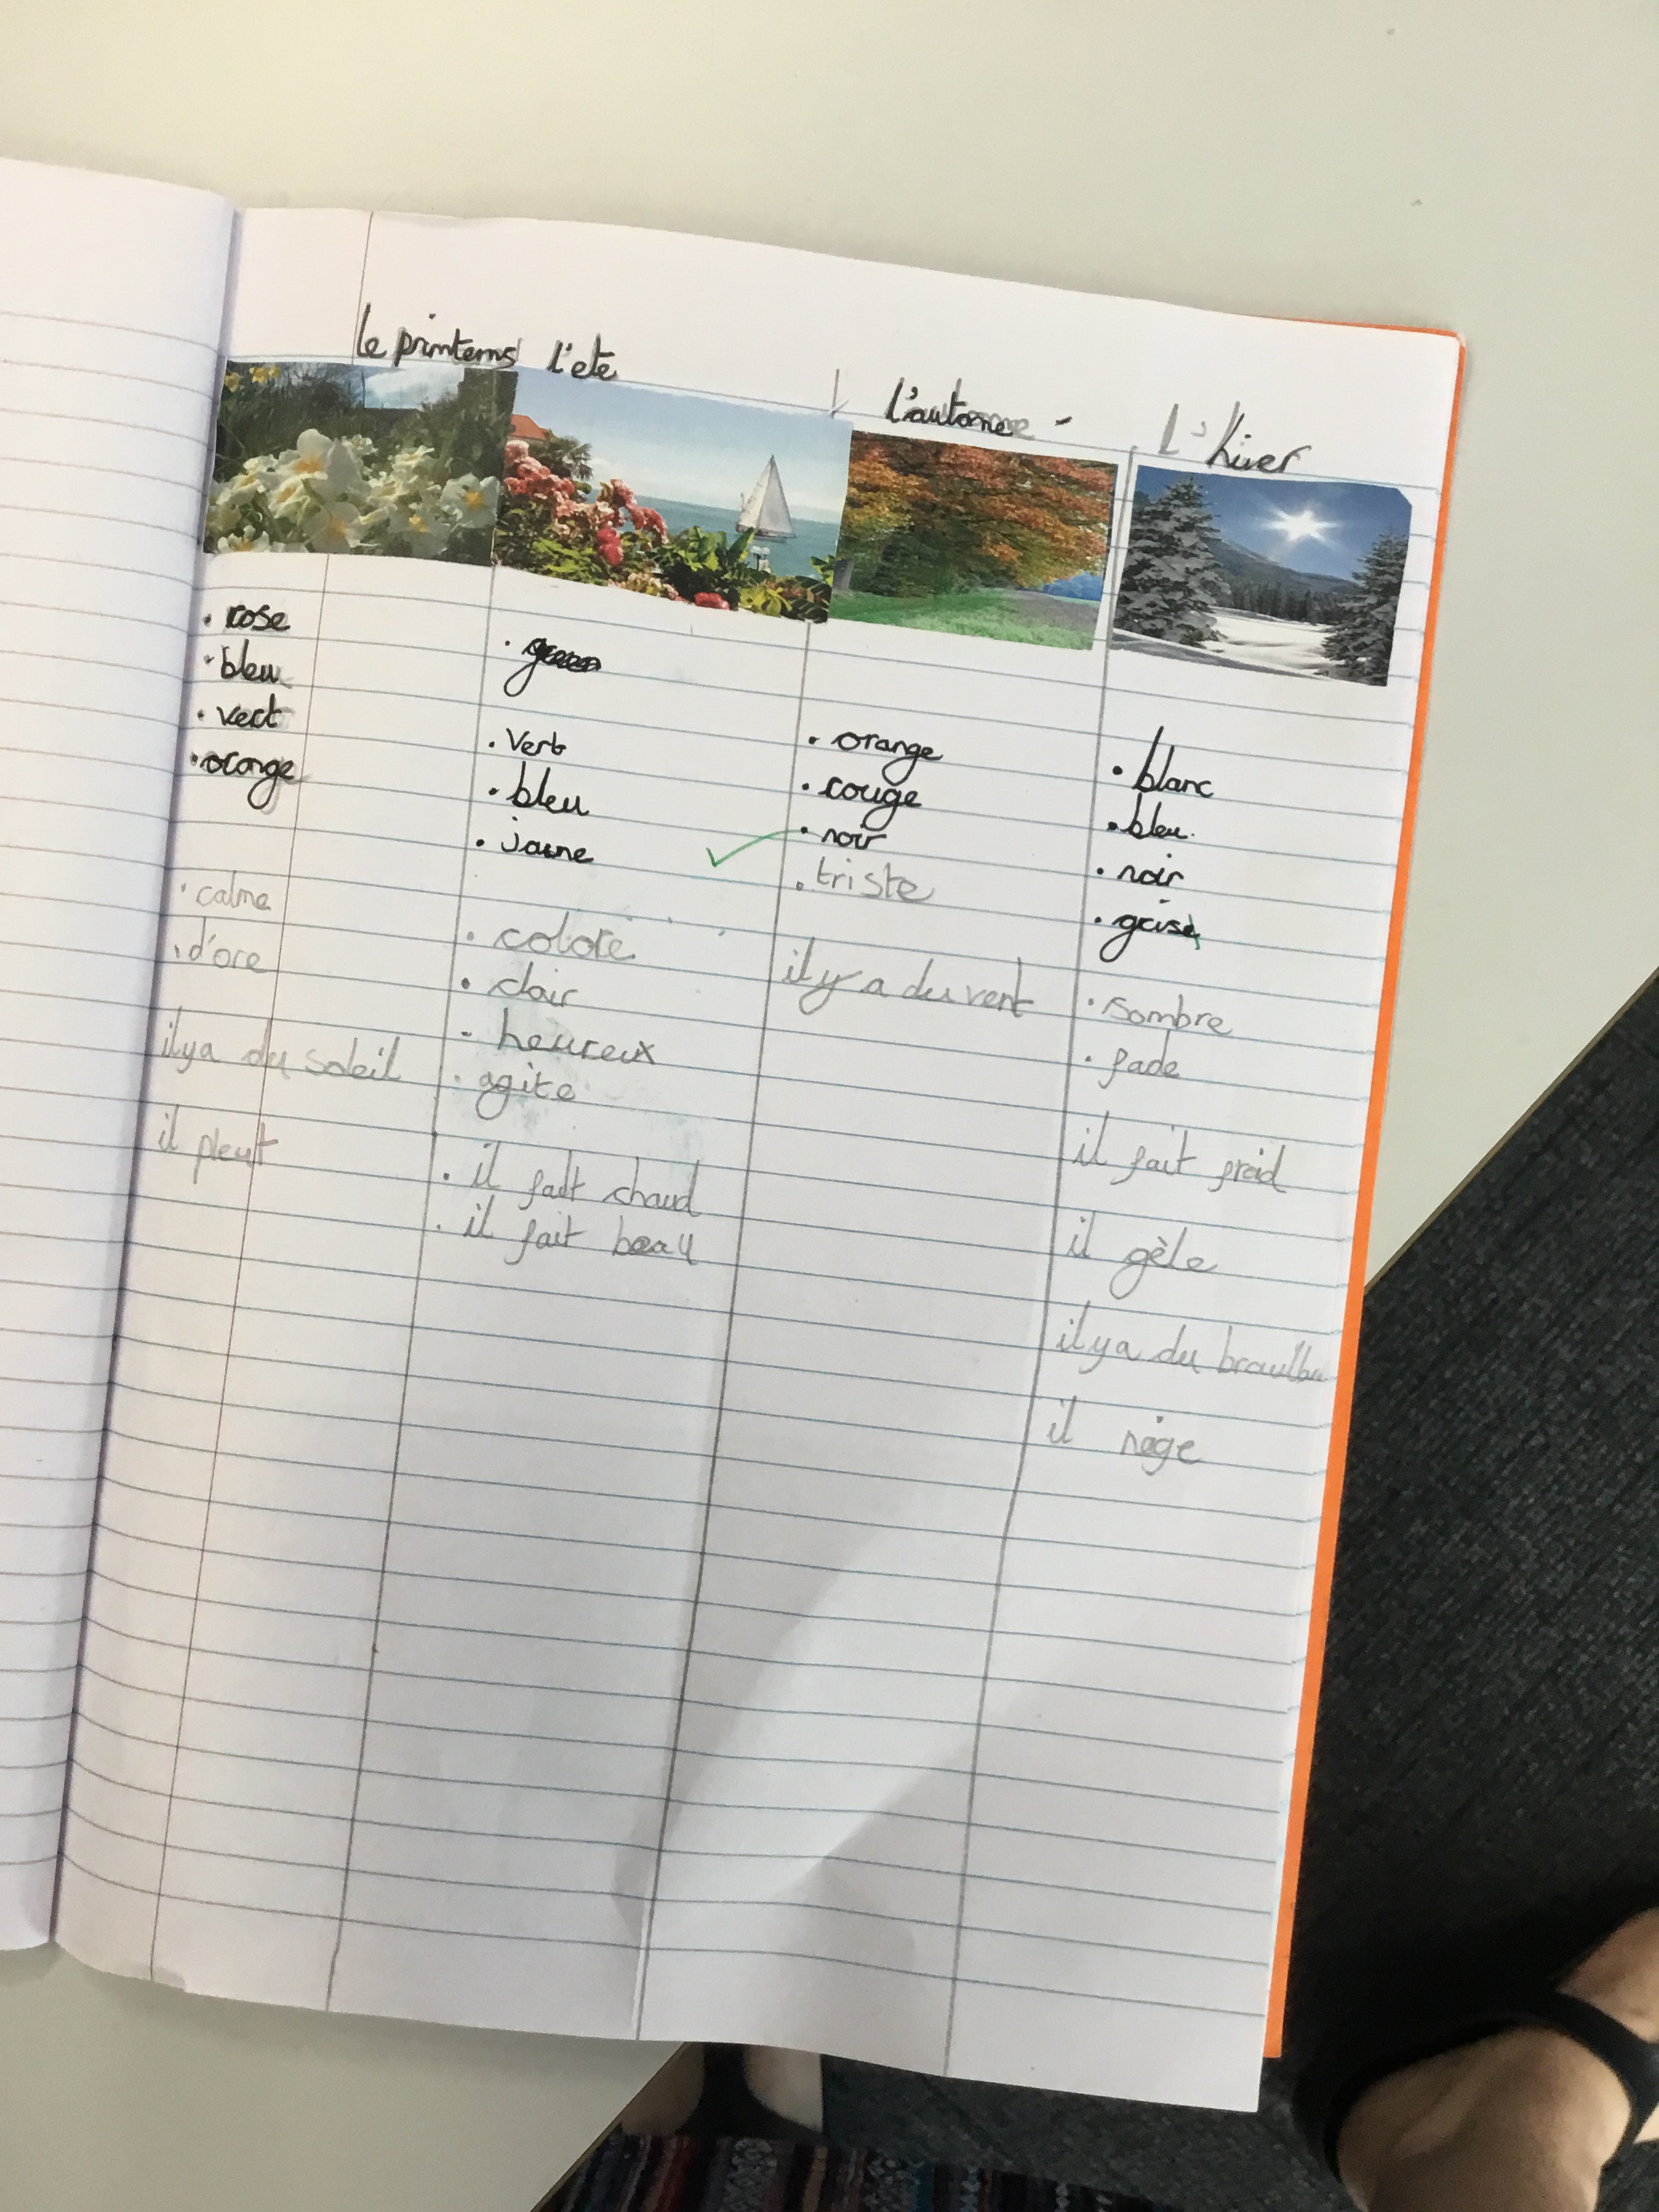 le printems
l'ete
l'automne -
L'hiver
. rose
. bleu
. vert
. orange
. calme
. d'ore
il y a du soleil
il pleut
. vert
. bleu
. jaune
. coloré
. clair
- heureux
. agite
. il fait chaud
. il fait beau
. orange
. rouge
. noir
. triste
il y a du vent
. blanc
. bleu.
. noir
. grise
. sombre
. fade
il fait froid
il gèle
il y a du
il nège